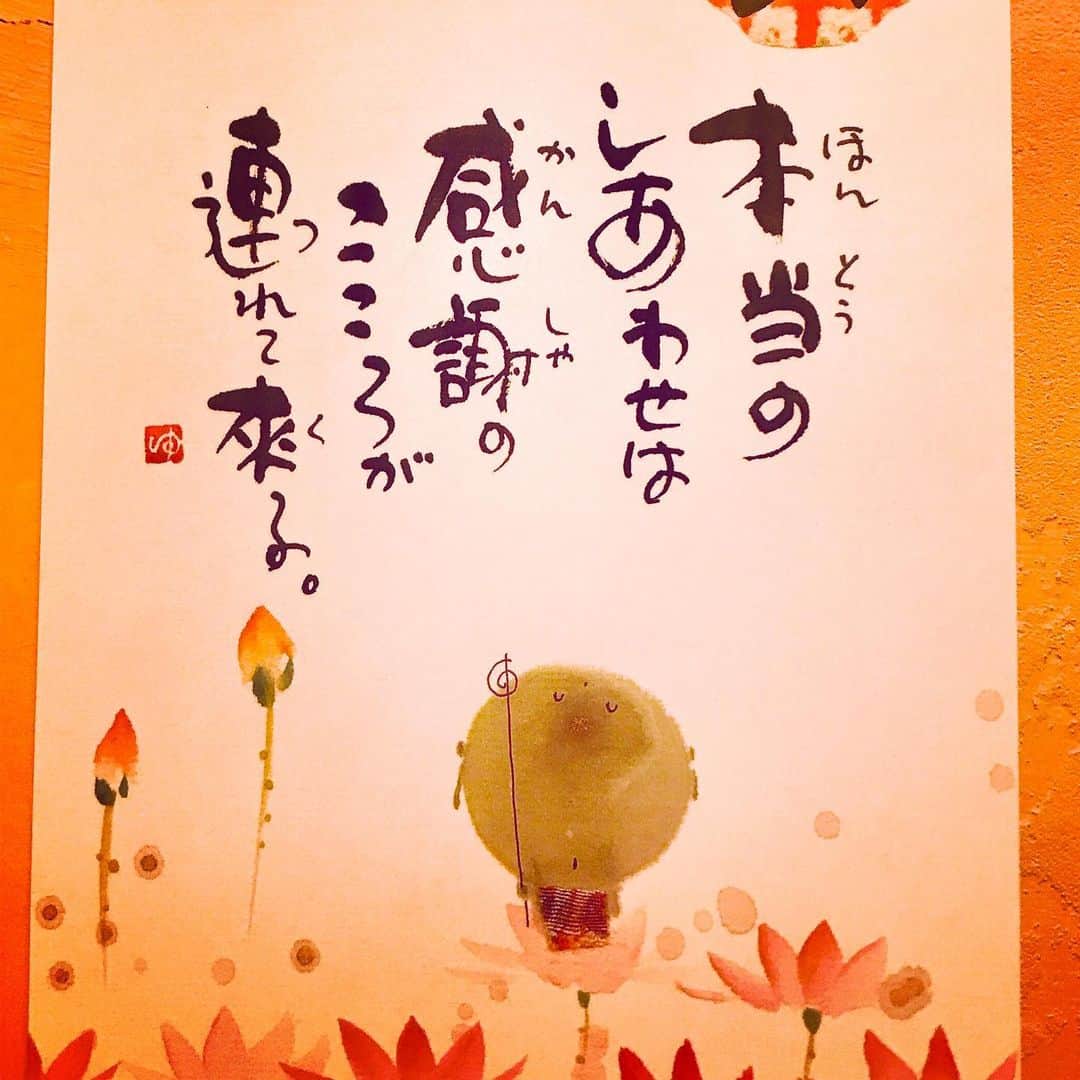 本当の
ほんとう
しあわせは
感謝の
かんしゃ
こころが
連れて來る。
つ
く
ゆ